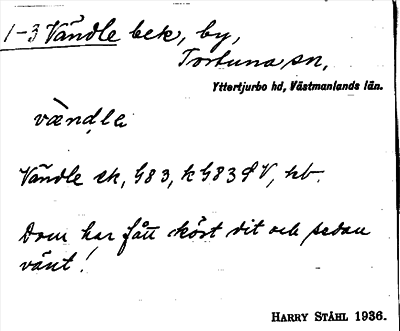 1-3 Vändle bek, by,
Tortuna sn,
Yttertjurbo hd, Västmanlands län.
vändle
Vändle ek, G83, k G83 SV, hb.
Dom har fått kört dit och sedan
vänt!
HARRY STÅHL 1936.